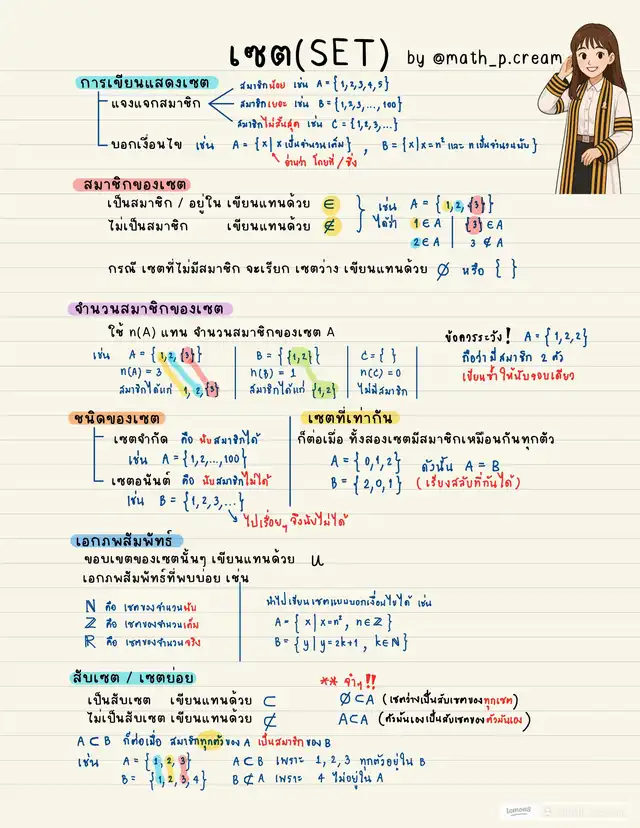 เซต(SET) by @math_p.cream
การเขียนแสดงเซต
แจงแจกสมาชิก
สมาชิกน้อย เช่น A = {1,2,3,4,5}
สมาชิกเยอะ เช่น B = {1,2,3,...,100}
สมาชิกไม่สิ้นสุด เช่น C = {1,2,3,...}
บอกเงื่อนไข เช่น A = {x | x เป็นจำนวนเต็ม} , B = {x | x = n² และ n เป็นจำนวนนับ}
อ่านว่า โดยที่ / ซึ่ง
สมาชิกของเซต
เป็นสมาชิก / อยู่ใน เขียนแทนด้วย ∈
ไม่เป็นสมาชิก เขียนแทนด้วย ∉
เช่น A = {1,2,{3}}
ได้ว่า 1 ∈ A {3} ∈ A
2 ∈ A 3 ∉ A
กรณี เซตที่ไม่มีสมาชิก จะเรียก เซตว่าง เขียนแทนด้วย ∅ หรือ { }
จำนวนสมาชิกของเซต
ใช้ n(A) แทน จำนวนสมาชิกของเซต A
เช่น A = {1,2,{3}}
n(A) = 3
สมาชิกได้แก่ 1,2,{3}
B = {{1,2}}
n(B) = 1
สมาชิกได้แก่ {1,2}
C = { }
n(C) = 0
ไม่มีสมาชิก
ข้อควรระวัง! A = {1,2,2}
ถือว่ามีสมาชิก 2 ตัว
เขียนซ้ำ ให้นับรอบเดียว
ชนิดของเซต
เซตจำกัด คือ นับสมาชิกได้
เช่น A = {1,2,...,100}
เซตอนันต์ คือ นับสมาชิกไม่ได้
เช่น B = {1,2,3,...}
ไปเรื่อยๆ จึงนับไม่ได้
เซตที่เท่ากัน
ก็ต่อเมื่อ ทั้งสองเซตมีสมาชิกเหมือนกันทุกตัว
A = {0,1,2}
B = {2,0,1}
ดังนั้น A = B
(เรียงสลับที่กันได้)
เอกภพสัมพัทธ์
ขอบเขตของเซตนั้นๆ เขียนแทนด้วย U
เอกภพสัมพัทธ์ที่พบบ่อย เช่น
ℕ คือ เซตของจำนวนนับ
ℤ คือ เซตของจำนวนเต็ม
ℝ คือ เซตของจำนวนจริง
นำไปเขียนเซตแบบบอกเงื่อนไขได้ เช่น
A = {x | x = n², n ∈ ℤ}
B = {y | y = 2k+1, k ∈ ℕ}
สับเซต / เซตย่อย
เป็นสับเซต เขียนแทนด้วย ⊂
ไม่เป็นสับเซต เขียนแทนด้วย ⊄
** จำๆ !!
∅ ⊂ A (เซตว่างเป็นสับเซตของทุกเซต)
A ⊂ A (ตัวมันเองเป็นสับเซตของตัวมันเอง)
A ⊂ B ก็ต่อเมื่อ สมาชิกทุกตัวของ A เป็นสมาชิกของ B
เช่น A = {1,2,3} A ⊂ B เพราะ 1,2,3 ทุกตัวอยู่ใน B
B = {1,2,3,4} B ⊄ A เพราะ 4 ไม่อยู่ใน A
lemon8